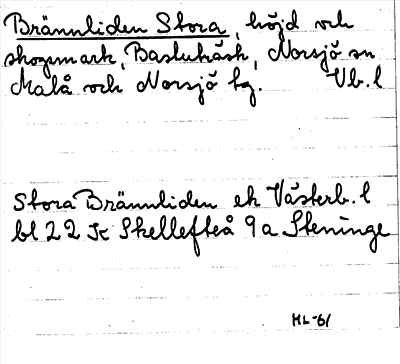 Brännliden Stora, höjd och
skogsmark, Bastuträsk, Norsjö sn
Malå och Norsjö tg. Vb. l
Stora Brännliden ek Västerb. l
bl 22 JC Skellefteå 9a Steninge
ML-61